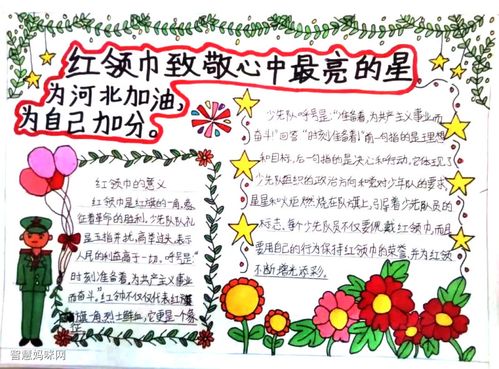 红领巾致敬心中最亮的星
为河北加油,
为自己加分。
红领巾的意义
红领巾是红旗的一角,象
征着革命的胜利。少先队队礼
是五指并拢,高举过头,表示
人民的利益高于一切。呼号是:“
时刻准备着,为共产主义事业
而奋斗”。红领巾不仅仅代表红旗
一角,烈士鲜血,它更是一个象
征
少先队呼号是:“准备着,为共产主义事业而
奋斗!”回答“时刻准备着!”前一句指的是理想
和目标,后一句指的是决心和行动,它体现了
少先队组织的政治方向和党对少年队的要求
星星和火炬燃烧在队旗上,引导着少先队员
的标志。每个少先队员不仅要佩戴红领巾,而且
要用自己的行为保持红领巾的荣誉,并为红领
不断增光添彩。
智慧妈咪网